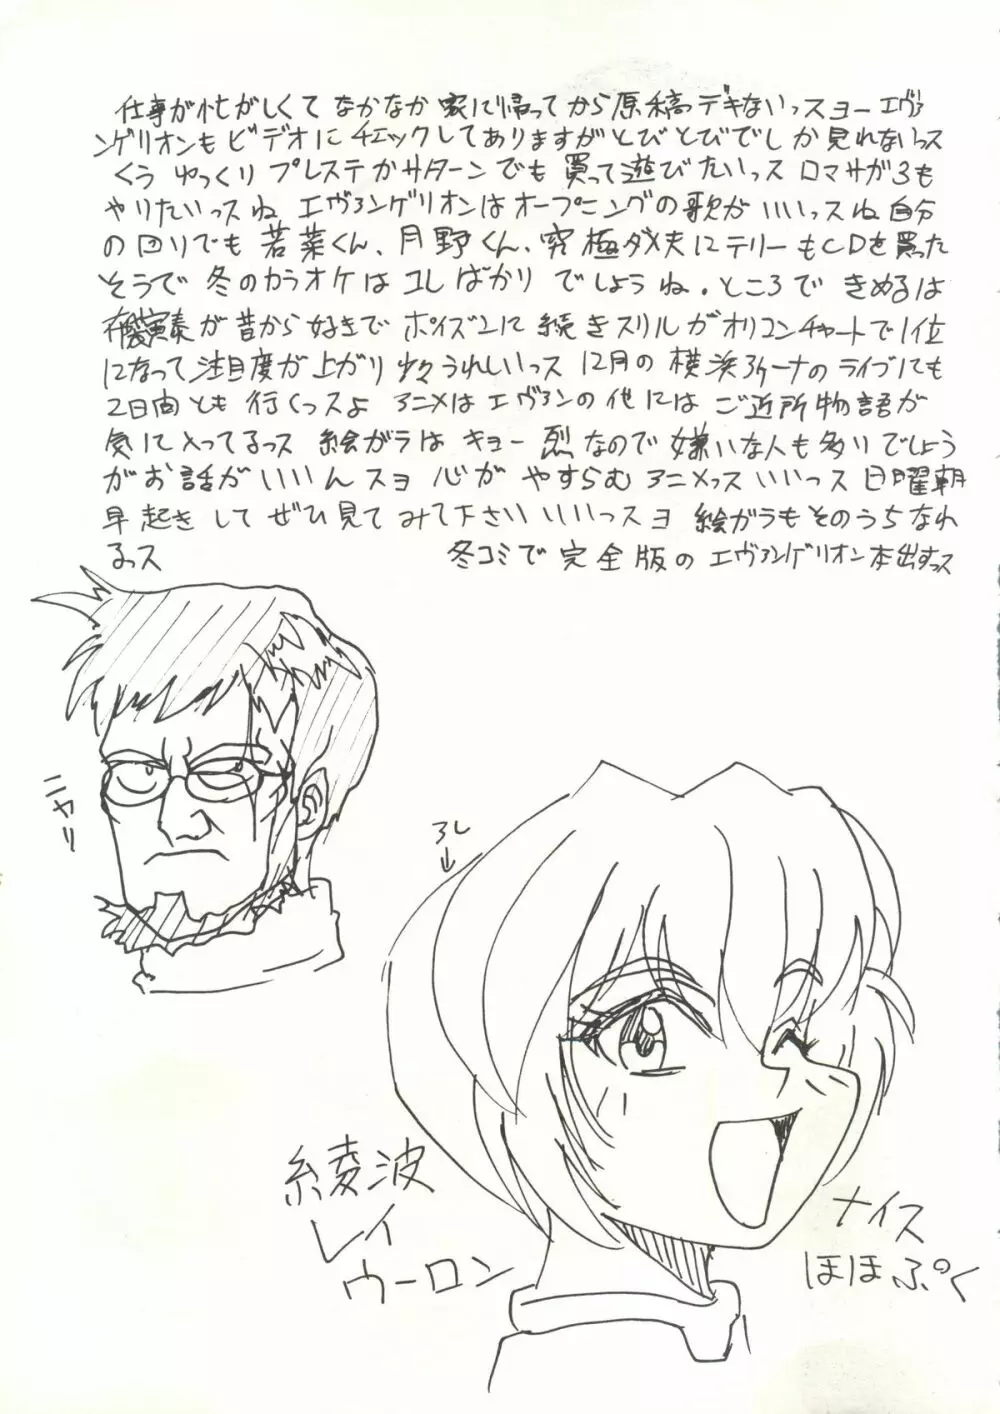 仕事が忙がしくて なかなか 家に帰ってから原稿デキないっスョー エヴァ
ンゲリオンもビデオにチェックしてありますがとびとびでしか見れないっス
くう ゆっくり プレステかサターンでも 買って遊びたいっス ロマサガ3も
やりたいっスね エヴァンゲリオンはオープニングの歌がいいっスね 自分
の回りでも 若菜くん、月野くん、究極ダメ夫にテリーもCDを買った
そうで 冬のカラオケは コレばかり でしょうね。ところで きめるは
が昔から好きで ポイズンに続きスリルがオリコンチャートで1位
になって注目度が上がり 少々うれしいっス 12月の 横浜アリーナのライブにも
2日間とも 行くっスよ アニメは エヴァンの他には ご近所物語が
気に入ってるっス 絵ガラは キョー烈なので 嫌いな人も多いでしょう
がお話がいいんスョ 心が やすらむ アニメっス いいっス 日曜朝
早起き して ぜひ見て みて下さい いいっスョ 絵ガラもそのうちなれ
るっス
冬コミで 完全版の エヴァンゲリオン本出すっス
ニヤリ
アレ
綾波
レイ
ウーロン
ナイス
ほほぷく